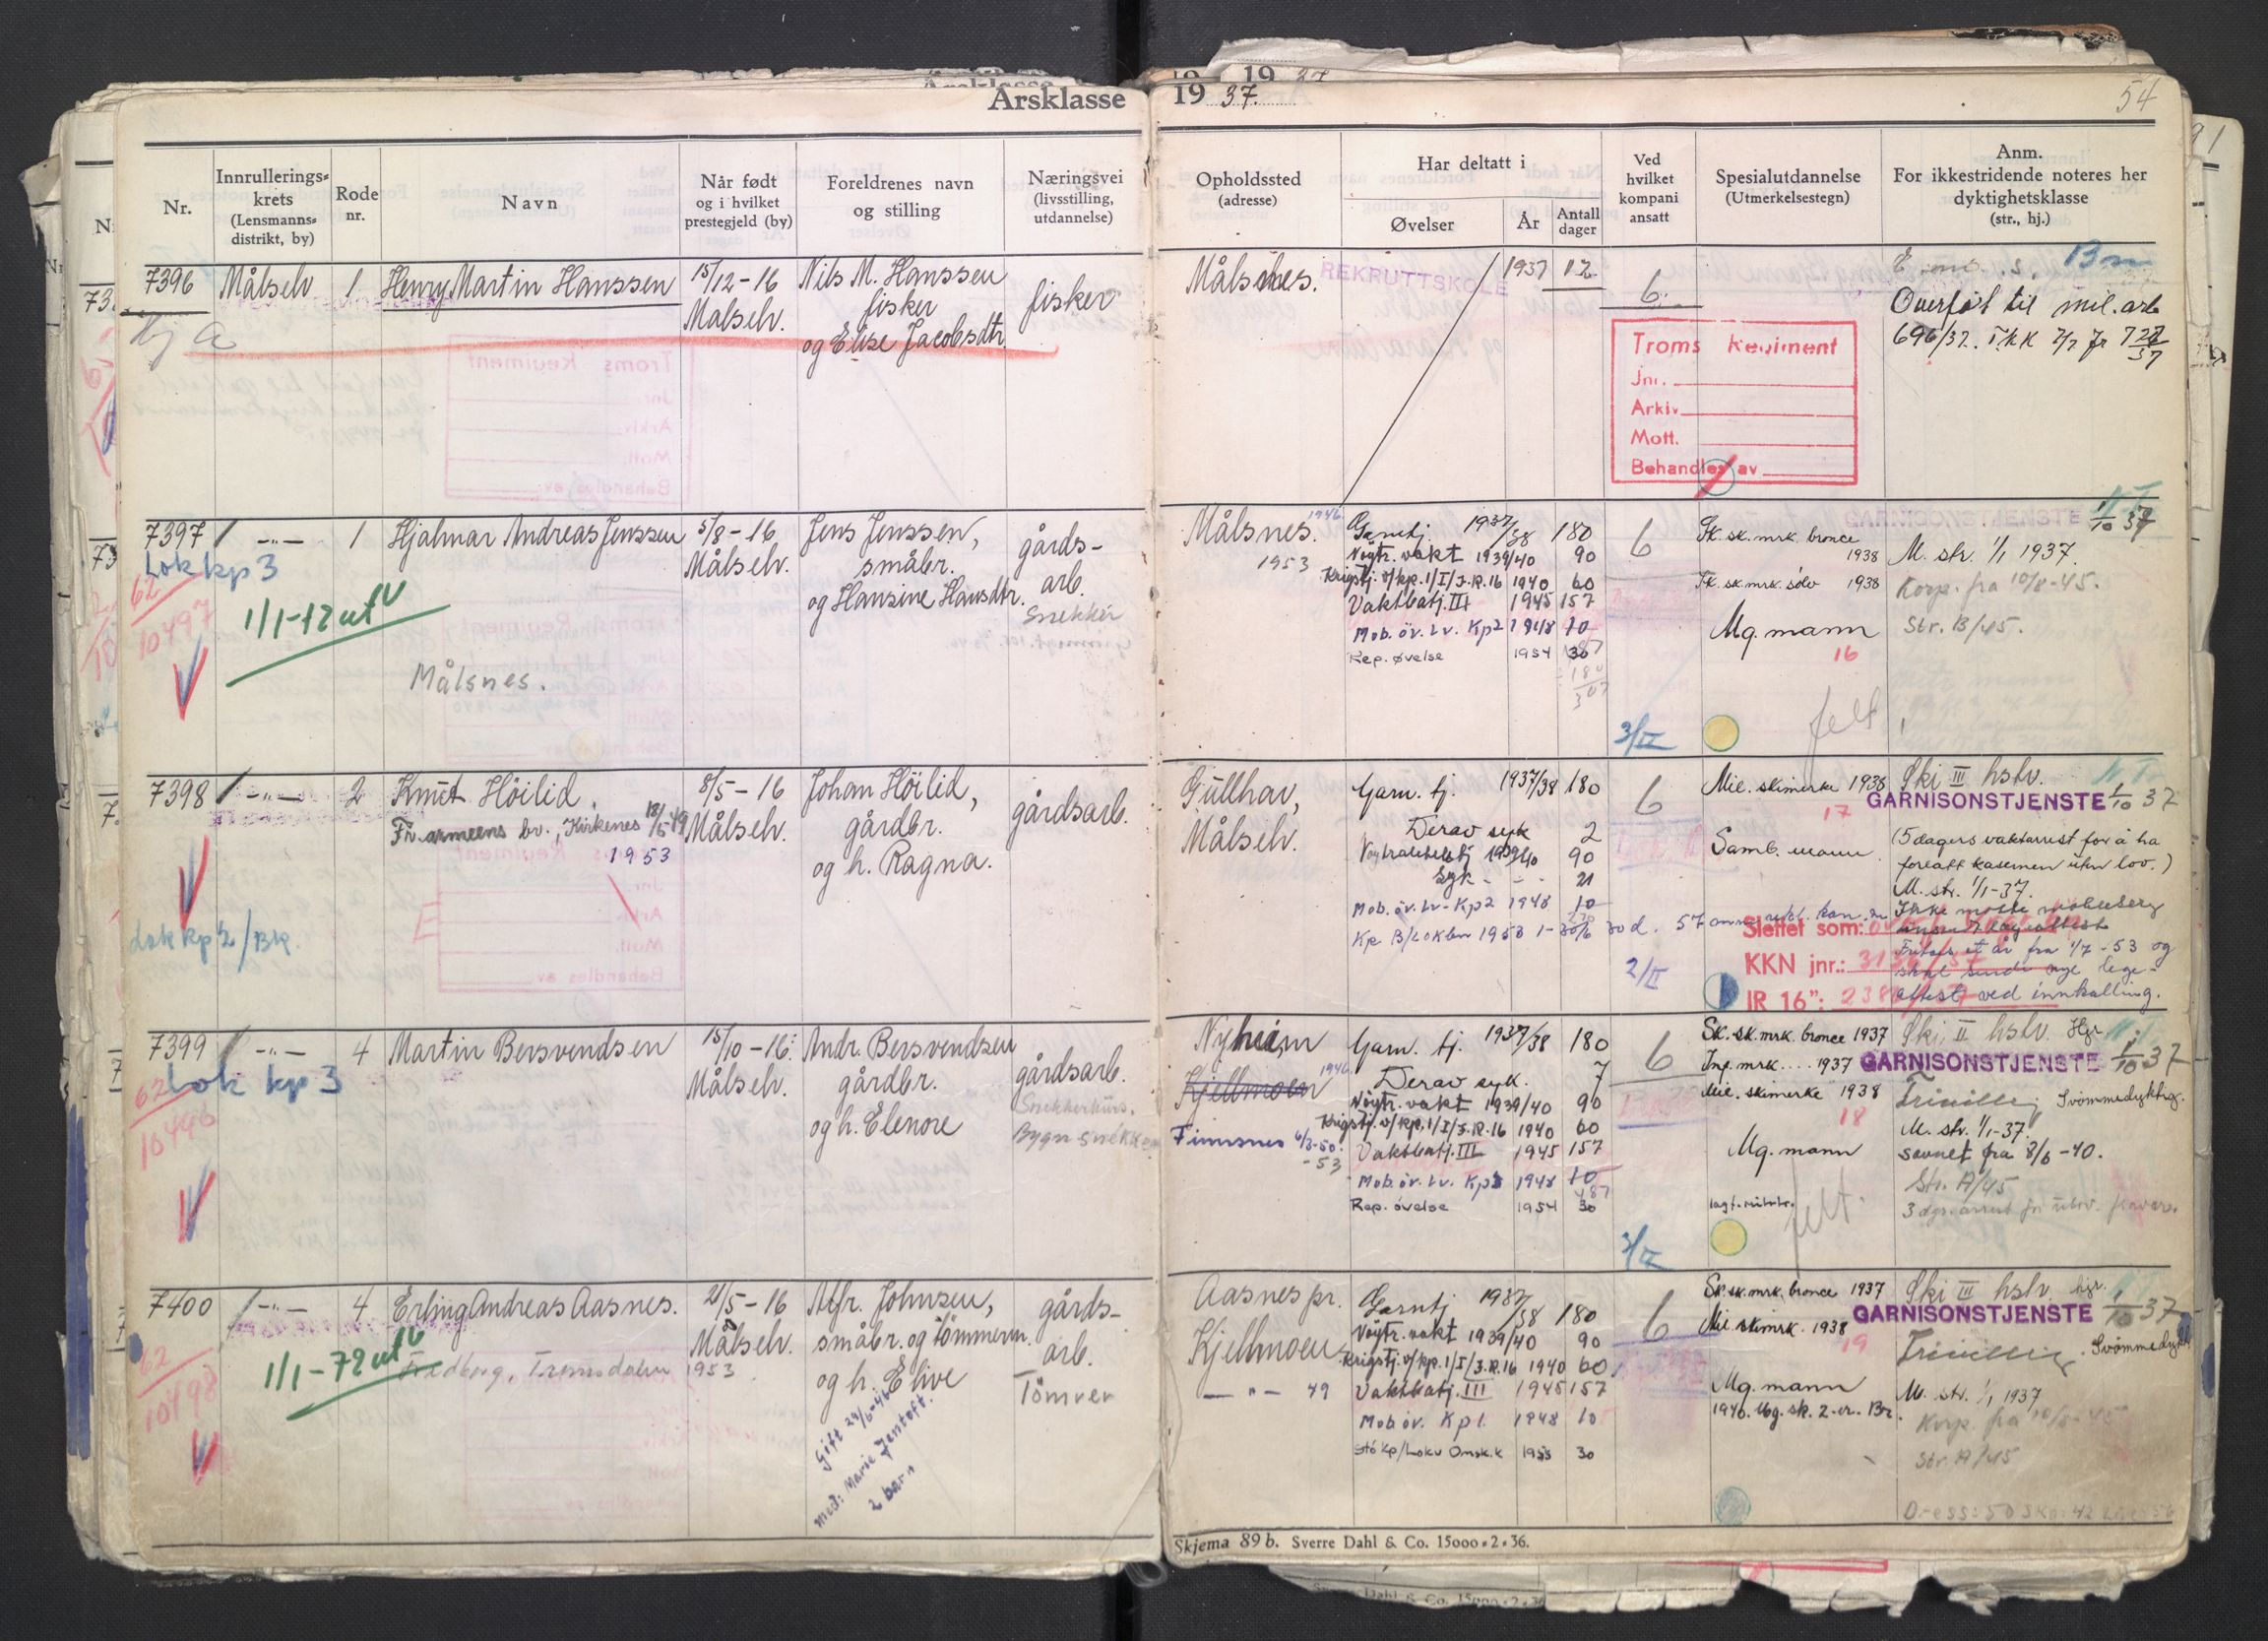 Årsklasse 1937.
54
Nr.
Innrulleringskrets (Lensmannsdistrikt, by)
Rode nr.
Navn
Når født og i hvilket prestegjeld (by)
Foreldrenes navn og stilling
Næringsvei (livsstilling, utdannelse)
Opholdssted (adresse)
Har deltatt i
Øvelser
År
Antall dager
Ved hvilket kompani ansatt
Spesialutdannelse (Utmerkelsestegn)
Anm.
For ikkestridende noteres her dyktighetsklasse (str., hj.)
7396 Målselv 1 Henry Martin Hanssen 15/12-16 Målselv.
Nils M. Hanssen
fisker
og Elise Jacobsdtr
fisker
Målsnes.
REKRUTTSKOLE 1937 12
6
Troms Regiment
Jnr.
Arkiv
Mott.
Behandles av
Overført til mil. arb
7397 -"- 1 Hjalmar Andreas Jenssen 5/8-16 Målselv.
Lok kp 3
62
10497
1/1-72 ut
Målsnes.
Jens Jenssen,
småbr.
og Hansine Hansdtr.
gårds-
arb.
Snekker
Målsnes. 1946
1953
Garntj. 1937/38 180
Nøytr. vakt 1939/40 90
Krigstj. v/kp. 1/I/J.R.16 1940 60
Vaktbatj. III 1945 157
Mob. öv. Lv. Kp 2 1948 10
Rep. øvelse 1954 30
6
3/II
Sk. sk. mrk. bronce 1938
Sk. sk. mrk. sölv 1938
Mg. mann
16
felt
GARNISONSTJENSTE 1/10 37
M. str. 1/1 1937.
Korp. fra 10/8-45.
Str. B/45.
7398 -"- 2 Knut Höilid. 8/5-16 Målselv.
Fr. armeens bv., Kirkenes 18/5-49
1953
Lok kp 2/Bk.
Johan Höilid,
gårdbr.
og h. Ragna.
gårdsarb.
Gullhav,
Målselv.
Garn. tj. 1937/38 180
Derav syk 2
1939/40 90
Syk - - - 21
Mob. öv. Lv-Kp 2 1948 10
6
2/II
Mil. skimerke 1938
17
Samb. mann
Ski III hslv.
GARNISONSTJENSTE 1/10 37
(5 dagers vaktarrest for å ha
forlatt kasernen uten lov.)
M. str. 1/1-37.
Fritas et år fra 1/7-53 og
skal sende nye lege-
attest ved innkalling.
Slettet som:
KKN jnr.:
IR 16":
7399 -"- 4 Martin Bersvendsen 15/10-16. Målselv.
62 Lok kp 3
10496
Andr. Bersvendsen
gårdbr.
og h. Elenore
gårdsarb.
Snekkerkurs.
Nyheim
Kjellmoen 1946
Finnsnes 6/3-50.
-53
Garn. tj. 1937/38 180
Derav syk. 7
Nøytr. vakt 1939/40 90
Krigstj. v/kp. 1/I/J.R.16 1940 60
Vaktbatj. III 1945 157
Mob. öv. Lv. Kp 3 1948 10
487
Rep. øvelse 1954 30
6
3/II
Sk. sk. mrk. bronce 1937
Inf. mrk.... 1937
Mil. skimerke 1938
18
Mg. mann
felt.
Ski II hslv. Hgr.
GARNISONSTJENSTE 1/10 37
Frivillig Svömmedyktig.
M. str. 1/1-37.
savnet fra 8/6-40.
Str. A/45
7400 -"- 4 Erling Andreas Aasnes. 21/5-16 Målselv.
62
10498
1/1-72 ut
Fredborg, Tromsdalen 1953
Alfr. Johnsen,
småbr. og tömmerm.
og h. Elive
Gift 29/6-46
med: Marie Jentoft.
2 barn
gårds-
arb.
Tömrer
Aasnes pr.
Kjellmoen
-"- 49
Garntj 1937/38 180
Nøytr. vakt 1939/40 90
Krigstj. v/kp. 1/I/J.R.16 1940 60
Vaktbatj. III 1945 157
Mob. öv. Kp 1. 1948 10
Stökp/Lokv Omsk. k 1955 30
6
Sk. sk. mrk. bronce 1937
Mil skimrk. 1938
19
Mg. mann
Ski III hslv. hgr.
GARNISONSTJENSTE 1/10 37
Frivillig. Svömmedykt
M. str. 1/1 1937
Korp. fra 10/8-45
Str. A/45
Skjema 89 b. Sverre Dahl & Co. 15000.2.36.